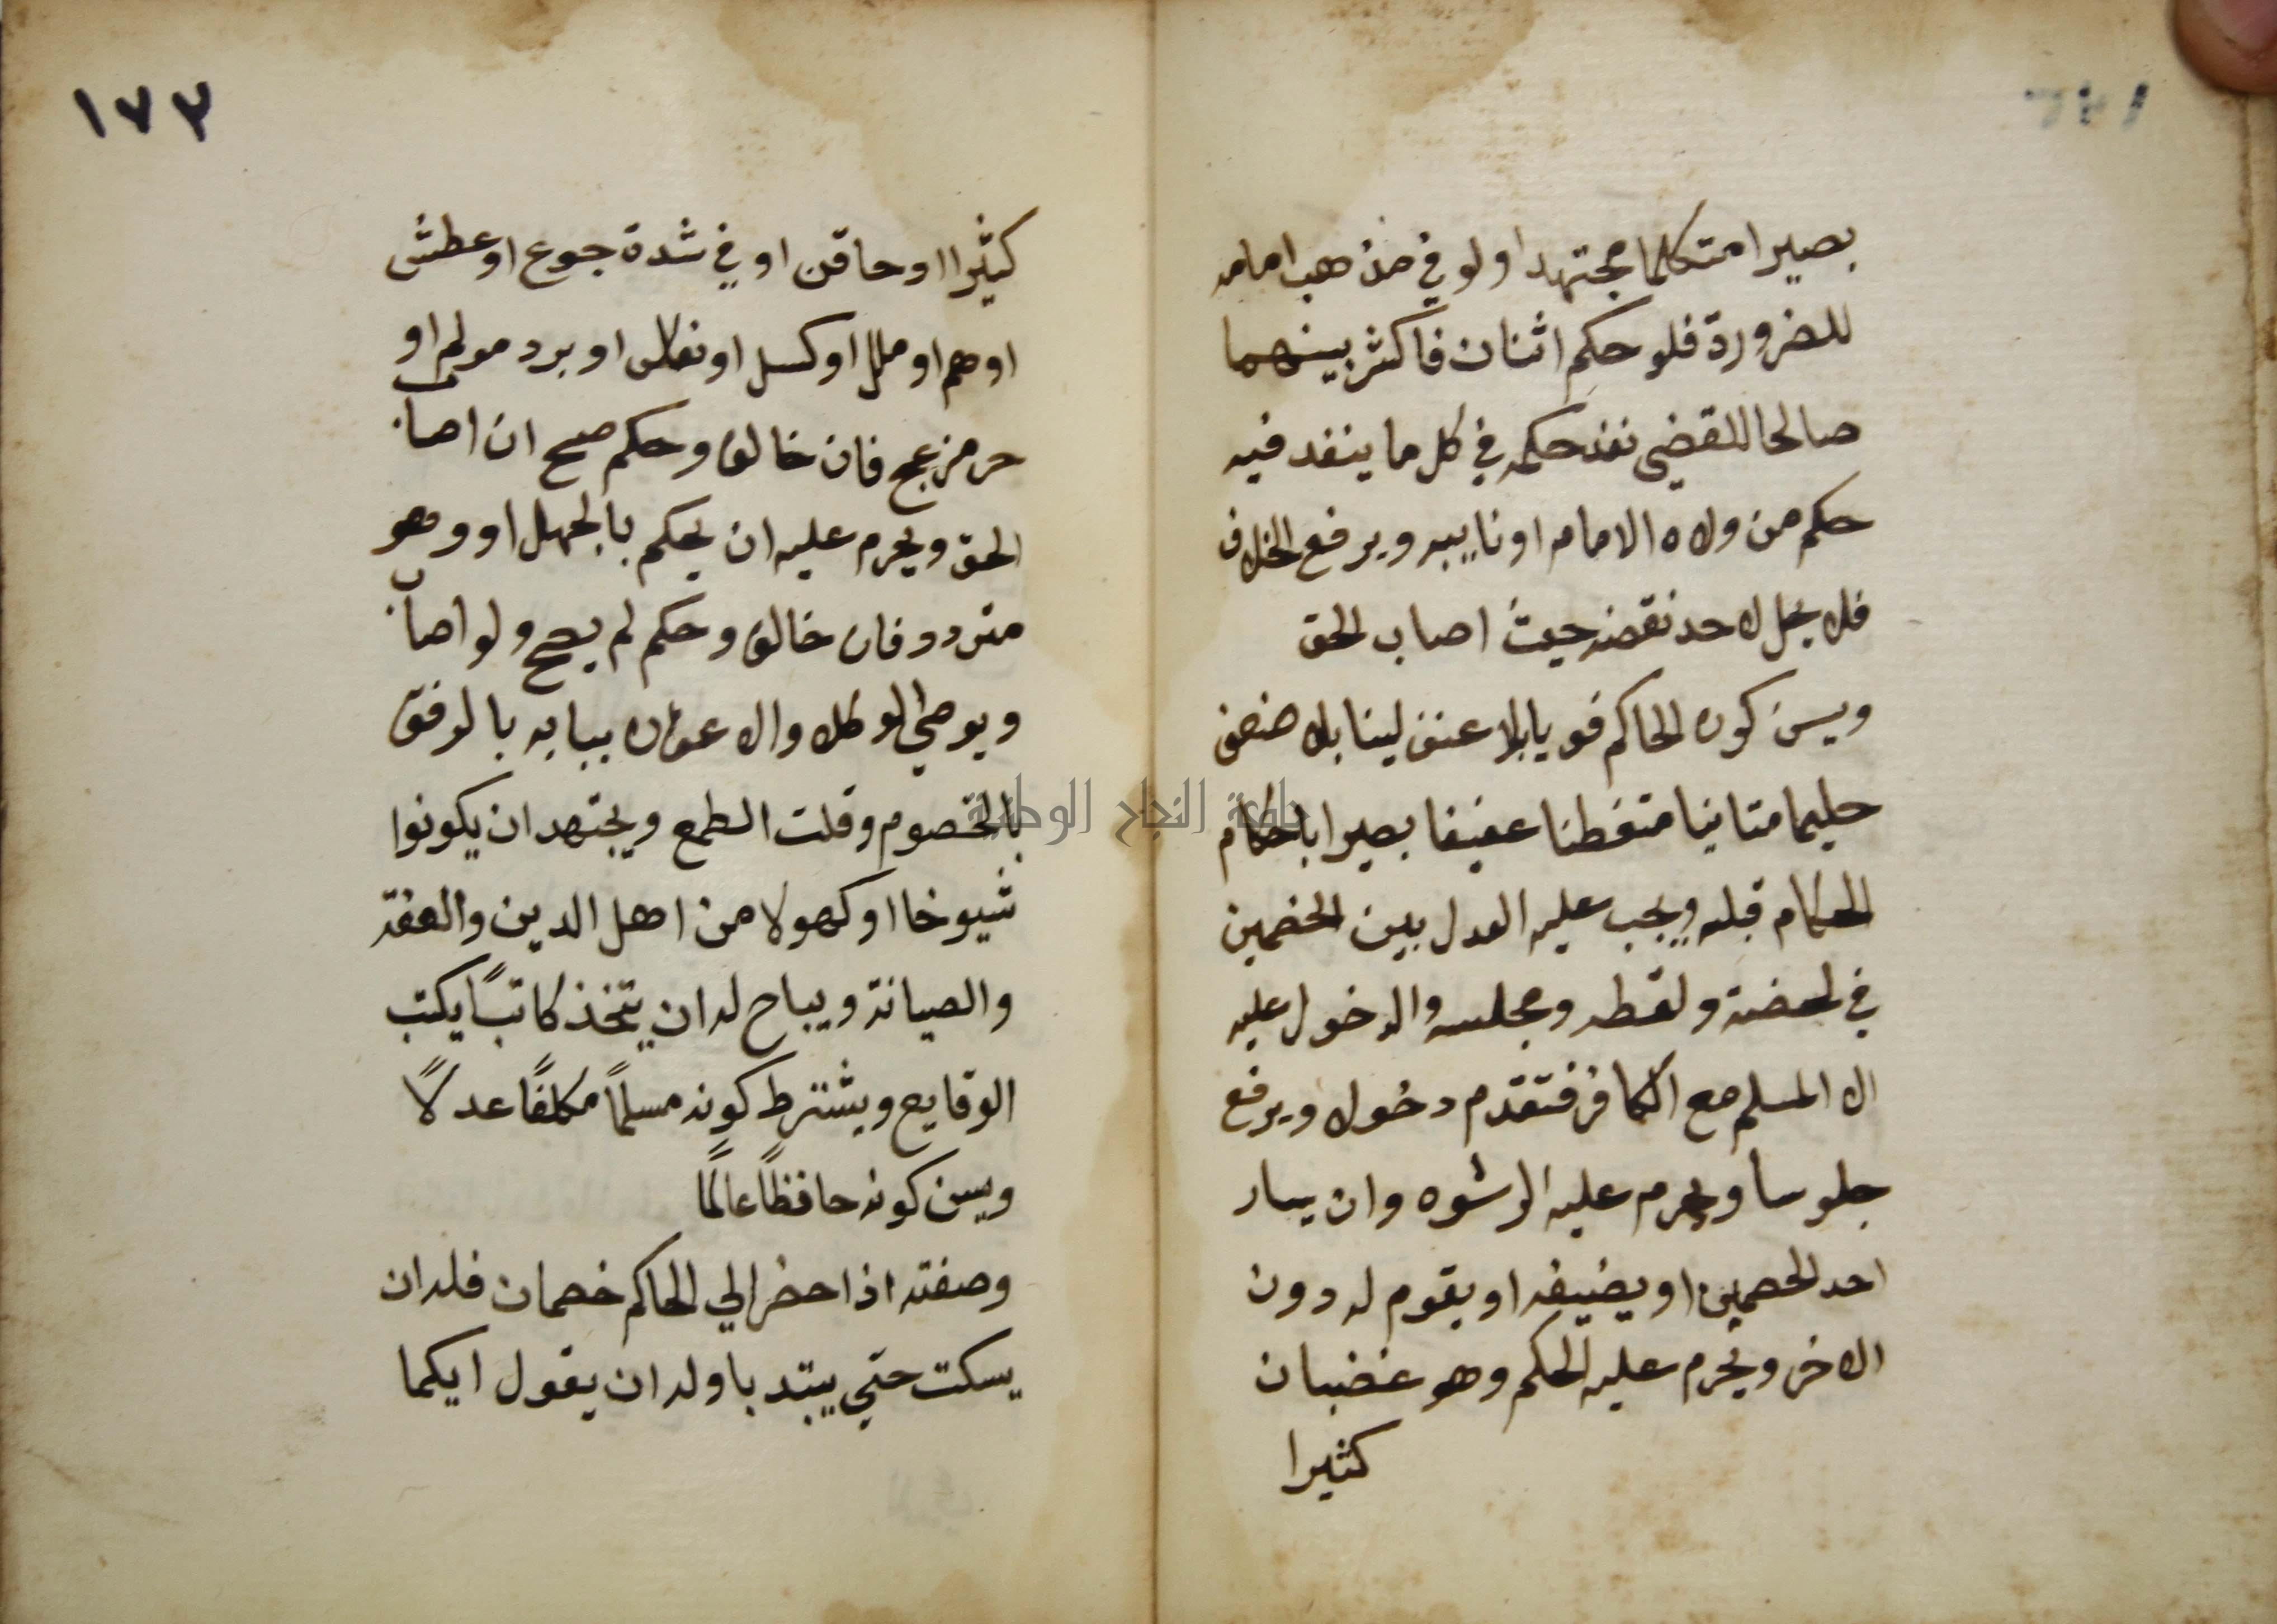 بصيرا متكلما مجتهدا ولو في مذهب امامه
للضرورة فلو حكم اثنان فاكثر بينهما
صالحا للقضي نفذ حكمه في كل ما ينفد فيه
حكم من ولاه الامام او ناييبه ويرفع الخلاف
فلا يحل لاحد نقضه حيث اصاب الحق
ويسن كون الحاكم قويا بلا عنف لينا بلا ضعف
حليما متانيا متفطنا عفيفا بصيرا باحكام
الحكام قبله ويجب عليه العدل بين الخصمين
في لحضة ولفطه ومجلسه والدخول عليه
الا المسلم مع الكافر فتقدم دخولا ويرفع
جلوسا ويحرم عليه الرشوه وان يسار
احد الخصمين او يضيفه او يقوم له دون
الاخر ويحرم عليه الحكم وهو غضبان
كثيرا
١٧٣
كثيرا او حاقن او في شدة جوع او عطش
او هم او ملل او كسل او نعاس او برد مولم او
حر مزعج فان خالف وحكم صح ان اصاب
الحق ويحرم عليه ان يحكم بالجهل او وهو
متردد فان خالف وحكم لم يصح ولو اصاب
ويوصي الوكلا والاعوان ببابه بالرفق
بالخصوم وقلت الطمع ويجتهد ان يكونوا
شيوخا او كهولا من اهل الدين والعفة
والصيانة ويباح له ان يتخذ كاتبًا يكتب
الوقايع ويشترط كونه مسلمًا مكلفًا عدلًا
ويسن كونه حافظًا عالمًا
وصفته اذا حضر الي الحاكم خصمان فله ان
يسكت حتي يبتدبا وله ان يقول ايكما
جامعة النجاح الوطنية